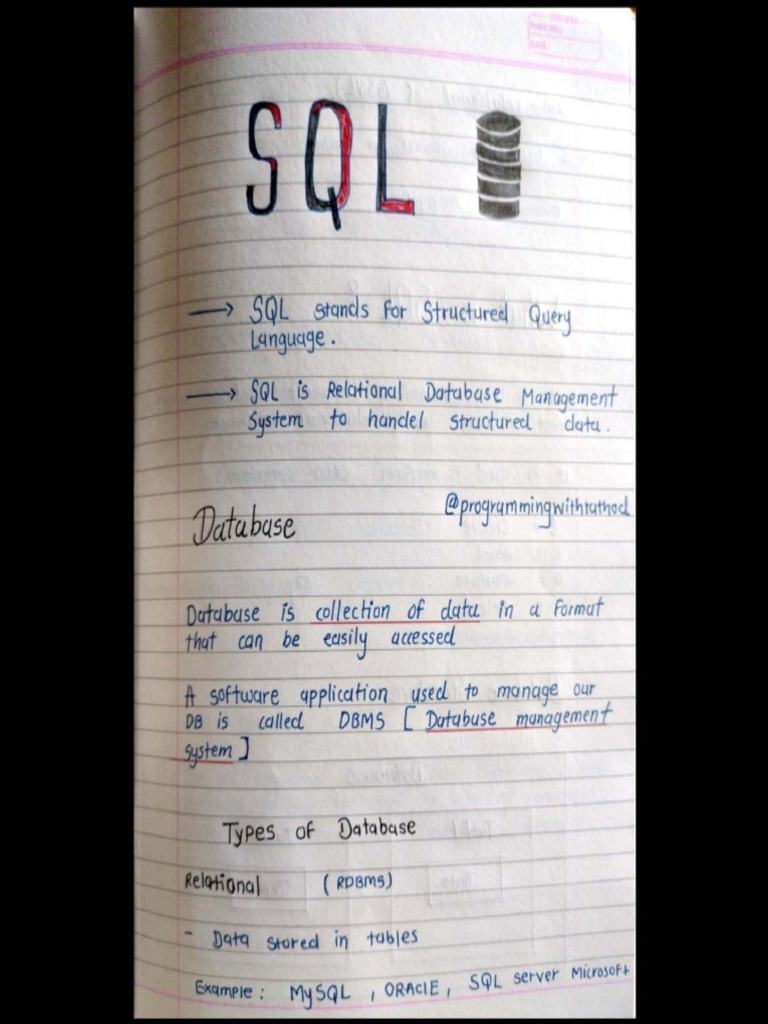 SQL
→ SQL stands for Structured Query
Language.
→ SQL is Relational Database Management
System to handel structured data.
@programmingwithrathod
Database
Database is collection of data in a format
that can be easily accessed
A software application used to manage our
DB is called DBMS [Database management
system]
Types of Database
Relational (RDBMS)
- Data stored in tables
Example: MySQL, ORACLE, SQL server Microsoft